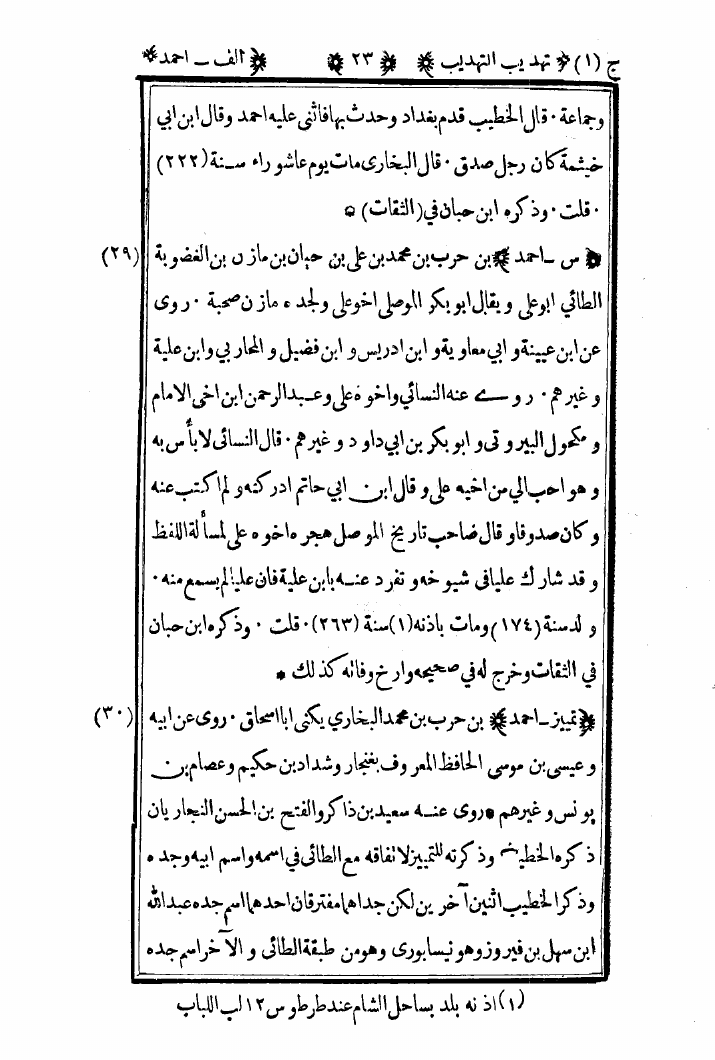 ج (١) ﴿ تهذيب التهذيب ﴾ ﴿ ٢٣ ﴾ ﴿ الف ـ احمد ﴾
وجماعة ٠ قال الخطيب قدم بغداد وحدث بها فاثنى عليه احمد وقال ابن ابي
خيثمة كان رجل صدق ٠ قال البخارى مات يوم عاشوراء سنة (٢٢٢)
٠ قلت ٠ وذكره ابن حبان في (الثقات) *
﴿ س ـ احمد ﴾ بن حرب بن محمد بن على بن حيان بن مازن بن الغضوبة (٢٩)
الطائي ابو على ويقال ابو بكر الموصلى اخو على ولجده مازن صحبة ٠ روى
عن ابن عيينة و ابي معاوية و ابن ادريس و ابن فضيل و المحاربي و ابن علية
و غيرهم ٠ روى عنه النسائي واخوه على وعبد الرحمن ابن اخى الامام
و مكحول البيروتى و ابو بكر بن ابي داود و غيرهم ٠ قال النسائى لا بأس به
و هو احب الي من اخيه على و قال ابن ابي حاتم ادركته و لم اكتب عنه
و كان صدوقا و قال صاحب تاريخ الموصل هجره اخوه على لمسألة اللفظ
و قد شارك عليا في شيوخه و تفرد عنه بابن علية فان عليا لم يسمع منه ٠
ولد سنة (١٧٤) ومات باذنه (١) سنة (٢٦٣) ٠ قلت ٠ وذكره ابن حبان
في الثقات وخرج له في صحيحه وارخ وفاته كذلك *
﴿ تمييز ـ احمد ﴾ بن حرب بن محمد البخاري يكنى ابا اسحاق ٠ روى عن ابيه (٣٠)
و عيسى بن موسى الحافظ المعروف بغنجار وشداد بن حكيم و عصام بن
يونس و غيرهم * روى عنه سعيد بن ذاكر والفتح بن الحسن النجاريان
ذكره الخطيب وذكرته للتمييز لاتفاقه مع الطائى في اسمه واسم ابيه وجده
وذكر الخطيب اثنين آخرين لكن جداهما مفترقان احدهما اسم جده عبد الله
ابن سهل بن فيروز وهو نيسابورى وهو من طبقة الطائى و الآخر اسم جده
(١) اذنه بلد بساحل الشام عند طرطوس ١٢ لب اللباب